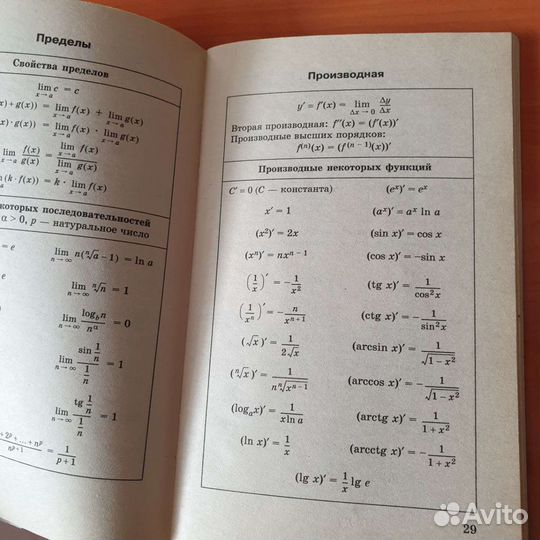 Пределы
Свойства пределов
lim c = c
x→a
x) + g(x)) = lim f(x) + lim g(x)
x→a x→a
x) · g(x)) = lim f(x) · lim g(x)
x→a x→a
lim f(x)/g(x) = lim f(x) / lim g(x)
x→a x→a x→a
(k · f(x)) = k · lim f(x)
x→a
которых последовательностей
α > 0, p — натуральное число
= e
lim n(ⁿ√a − 1) = ln a
n→∞
lim ⁿ√n = 1
n→∞
lim log_b n / n^α = 0
n→∞
lim sin (1/n) / (1/n) = 1
n→∞
lim tg (1/n) / (1/n) = 1
n→∞
+ 2^p + ... + n^p / n^(p+1) = 1/(p + 1)
Производная
y′ = f′(x) = lim Δy/Δx
Δx→0
Вторая производная: f″(x) = (f′(x))′
Производные высших порядков:
f⁽ⁿ⁾(x) = (f⁽ⁿ⁻¹⁾(x))′
Производные некоторых функций
C′ = 0 (C — константа) (eˣ)′ = eˣ
x′ = 1 (aˣ)′ = aˣ ln a
(x²)′ = 2x (sin x)′ = cos x
(xⁿ)′ = nxⁿ⁻¹ (cos x)′ = −sin x
(1/x)′ = −1/x² (tg x)′ = 1/cos²x
(1/xⁿ)′ = −n/xⁿ⁺¹ (ctg x)′ = −1/sin²x
(√x)′ = 1/(2√x) (arcsin x)′ = 1/√(1 − x²)
(ⁿ√x)′ = 1/(n ⁿ√xⁿ⁻¹) (arccos x)′ = −1/√(1 − x²)
(logₐx)′ = 1/(x ln a) (arctg x)′ = 1/(1 + x²)
(ln x)′ = 1/x (arcctg x)′ = −1/(1 + x²)
(lg x)′ = 1/x lg e
29
Avito